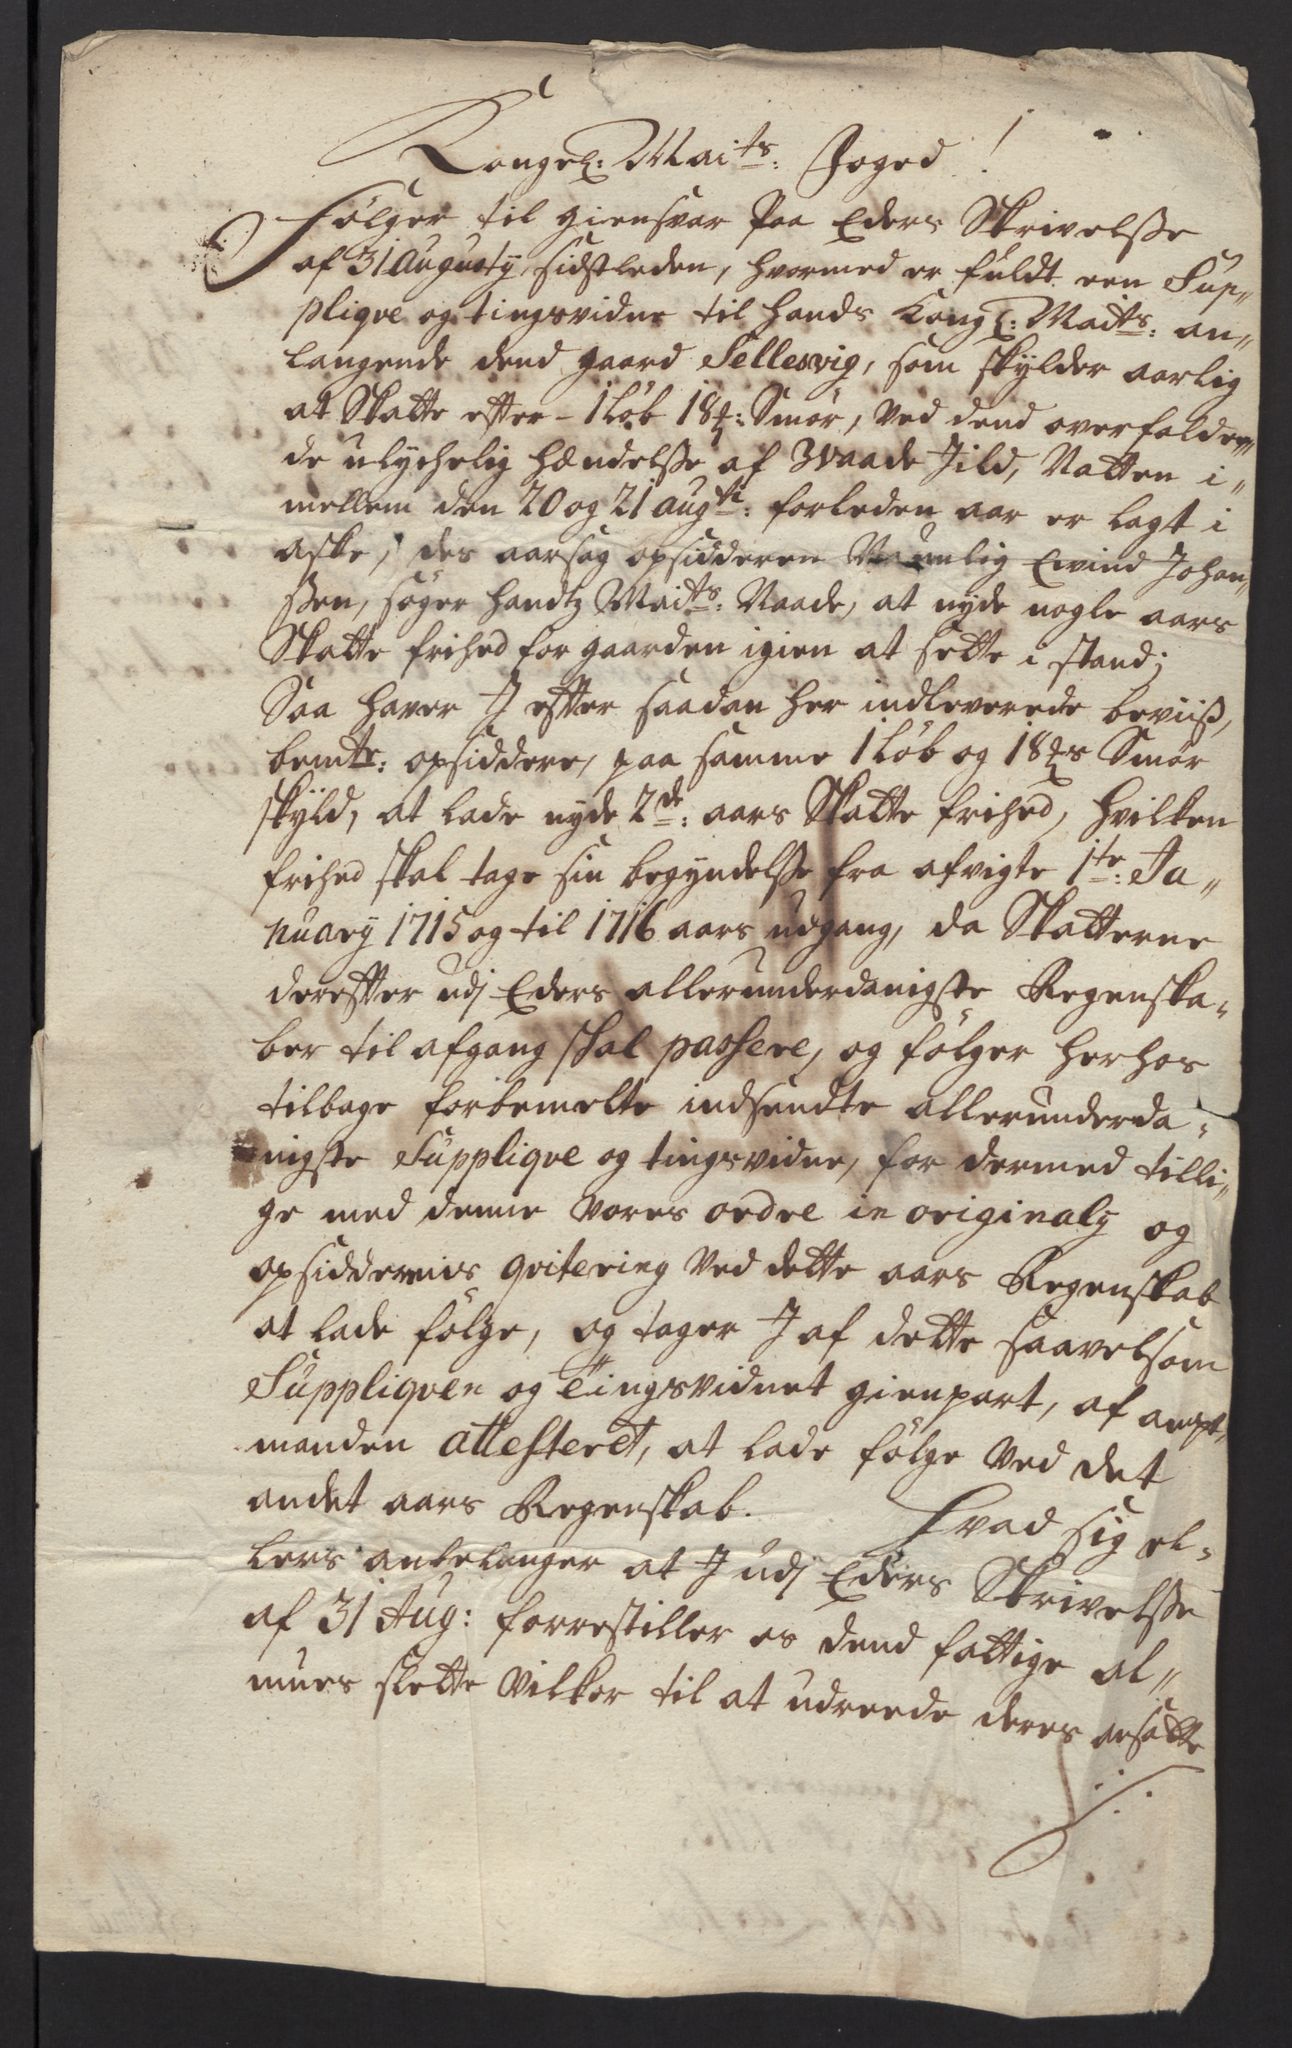 Kongel: Maits: Foged!
Følger til giensvar Paa Eders Skrivelsse
af 31 Augusty sidstleden, hvormed er fuldt een Sup„
pliqve og tingsvidne til hands Kongl: Maits: an„
langende dend gaard Sellesvig, som skylder aarlig
at Skatte effter - 1 Løb 18 ℔: Smør, ved dend overfalden„
de ulychelig Hændelsse af Waade Jild, Natten i„
mellem den 20 og 21 augti: forleden aar er lagt i
aske, des aarsag opsidderen Naunlig Eivind Johan„
ßen, søger handtz Maits: Naade, at nyde nogle aars
Skatte frihed for gaarden igien at sette i stand;
Saa haver I effter saadan her indleverede beviiß,
bemte: opsiddere, paa samme 1 Løb og 18 ℔s Smør
skyld, at lade nyde 2de: aars Skatte frihed, hvilken
frihed skal tage sin begyndelsse fra afvigte 1te: Ja„
nuary 1715 og til 1716 aars udgang, da Skatterne
dereffter udj Eders allerunderdanigste Regenska„
ber til afgang skal passere, og følger herhos
tilbage forbemelte indsendte allerunderda„
nigste Suppliqve og tingsvidne, for dermed tilli„
ge med denne vores ordre in originaly og
opsidderens qvitering ved dette aars Regenskab
at lade følge, og tager I af dette saavelsom
Suppliqven og Tingsvidnet gienpart, af ampt„
manden attesteret, at lade følge ved det
andet aars Regenskab. Hvad sig el„
lers anbelanger at I udj Eders Skrivelsse
af 31 Aug: forrestiller os dend fattige al„
mues slette Vilkor til at udreede deres ansatte